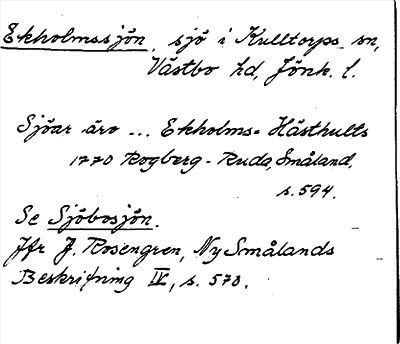 Ekholmssjön, sjö i Kulltorps sn,
Västbo hd, Jönk. l.
Sjöar äro ... Ekholms- Hästhults
1770 Rogberg - Ruda, Småland,
s. 594.
Se Sjöbosjön.
Jfr J. Rosengren, Ny Smålands
Beskrifning IV, s. 570.